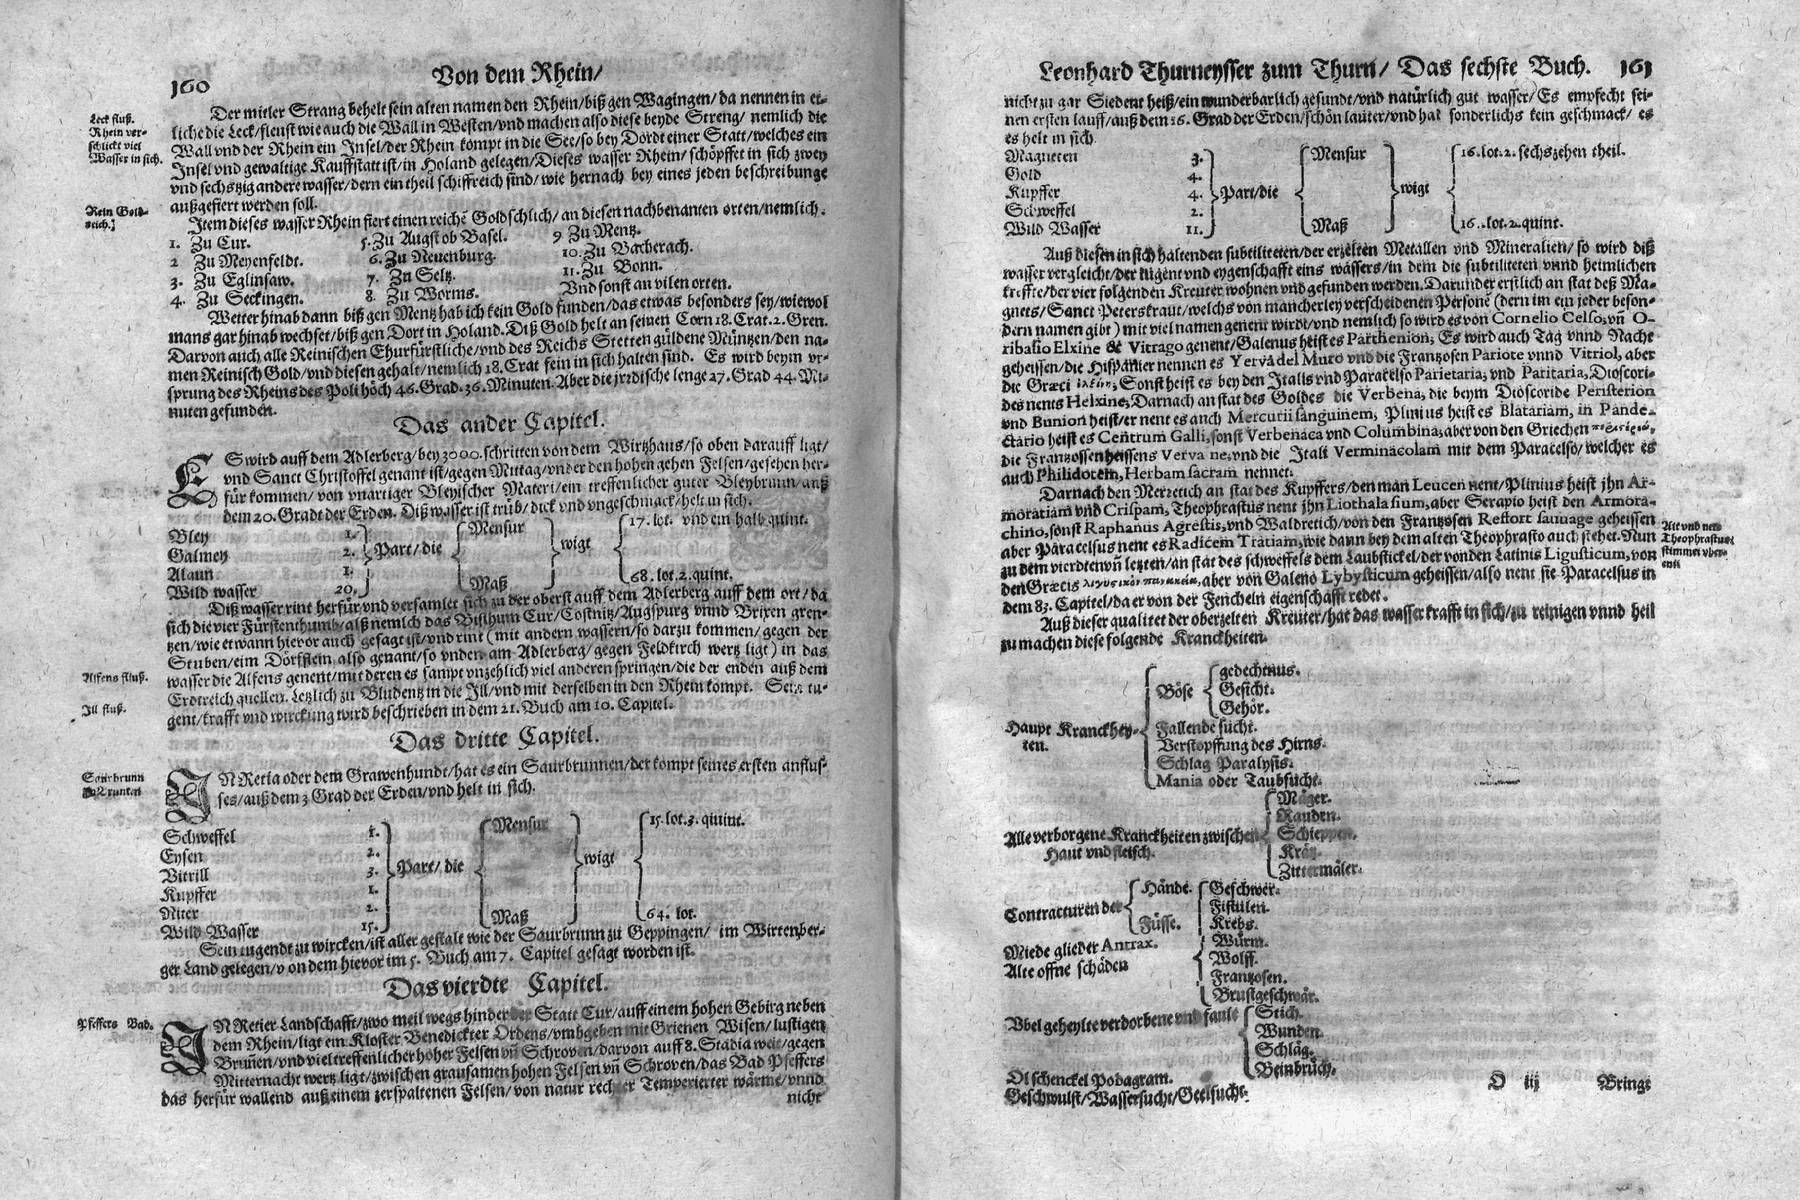 160 Von dem Rhein/
Der mitler Strang behelt sein alten namen den Rhein/biß gen Wagingen/da nennen in et-
liche die Leck/fleust wie auch die Wall in Westen/vnd machen also diese beyde Streng/ nemlich die
Wall vnd der Rhein ein Insel/der Rhein kompt in die See/so bey Dordt einer Statt/welches ein
Insel vnd gewaltige Kauffstatt ist/in Holand gelegen/Dieses wasser Rhein/schöpffet in sich zwey
vnd sechszig andere wasser/dern ein theil schiffreich sind/wie hernach bey eines jeden beschreibunge
außgefiert werden soll.
Leck fluß.
Rhein ver-
schlickt viel
Wasser in sich.
Rein Gold-
reich.
Item dieses wasser Rhein fiert einen reichē Goldschlich/an diesen nachbenanten orten/nemlich.
1. Zu Cur. 5. Zu Augst ob Basel. 9 Zu Mentz.
2 Zu Meyenfeldt. 6. Zu Neuenburg. 10. Zu Bacherach.
3. Zu Eglinsaw. 7. Zu Seltz. 11. Zu Bonn.
4. Zu Seckingen. 8. Zu Worms. Vnd sonst an vilen orten.
Wetter hinab dann biß gen Mentz hab ich kein Gold funden/das etwas besonders sey/wiewol
mans gar hinab wechset/biß gen Dort in Holand. Diß Gold helt an seinen Corn 18. Crat. 2. Gren.
Darvon auch alle Reinischen Churfürstliche/vnd des Reichs Stetten güldene Müntzen/den na-
men Reinisch Gold/vnd diesen gehalt/nemlich 18. Crat fein in sich halten sind. Es wird beym vr-
sprung des Rheins des Poli höch 46. Grad. 36. Minuten. Aber die jrrdische lenge 27. Grad 44. Mi-
nuten gefunden.
Das ander Capitel.
ES wird auff dem Adlerberg/bey 3000. schritten von dem Wirtzhaus/so oben darauff ligt/
vnd Sanct Christoffel genant ist/gegen Mittag/vnder den hohen gehen Felsen/gesehen her-
für kommen/von vnartiger Bleyischer Materi/ein treffenlicher guter Bleybrunn/auß
dem 20. Gradt der Erden. Diß wasser ist trüb/dick vnd vngeschmack/helt in sich.
Bley 1.
Galmey 2.
Alaun 1.
Wild wasser 20.
Part/die
Mensur
Maß
wigt
17. lot. vnd ein halb quint.
68. lot. 2. quint.
Diß wasser rint herfür vnd versamlet sich zu der oberst auff dem Adlerberg auff dem ort/da
sich die vier Fürstenthumb/alß nemlch das Bisthum Cur/Costnitz/Augspurg vnnd Brixen gren-
tzen/wie etwann hievor auch gesagt ist/vnd rint (mit andern wassern/so darzu kommen/gegen der
Stuben/eim Dörfflein also genant/so vnden am Adlerberg/gegen Feldkirch wertz ligt) in das
wasser die Alfens genent/mit deren es sampt vnzehlich viel anderen springen/die der enden auß dem
Erdtreich quellen. Letzlich zu Bludentz in die Ill/vnd mit derselben in den Rhein kompt. Sein tu-
gent/krafft vnd wirckung wird beschrieben in dem 21. Buch am 10. Capitel.
Alfens fluß.
Ill fluß.
Das dritte Capitel.
IN Retia oder dem Grawenhundt/hat es ein Saurbrunnen/der kompt seines ersten anflus-
ses/auß dem 3 Grad der Erden/vnd helt in sich.
Saurbrunn
Schweffel 1.
Eysen 2.
Vitrill 3.
Kupffer 1.
Niter 2.
Wild Wasser 15.
Part/die
Mensur
Maß
wigt
15. lot. 3. quint.
64. lot.
Sein tugendt zu wircken/ist aller gestalt wie der Saurbrunn zu Geppingen/ im Wirtenber-
ger Land gelegen/von dem hievor im 5. Buch am 7. Capitel gesagt worden ist.
Das vierdte Capitel.
Pfeffers Bad.
IN Retier Landschafft/zwo meil wegs hinder der Statt Cur/auff einem hohen Gebirg neben
dem Rhein/ligt ein Kloster Benedickter Ordens/vmbgeben mit Grienen Wisen/lustigen
Bruñen/vnd viel treffenlicher hoher Felsen vñ Schroven/darvon auff 8. Stadia weit/gegen
Mitternacht wertz ligt/zwischen grausamen hohen Felsen vñ Schroven/das Bad Pfeffers
das herfür wallend auß einem zerspaltenen Felsen/von natur rechter Temperierter wärme/vnnd
nicht
Leonhard Thurneysser zum Thurn/ Das sechste Buch. 161
nicht zu gar Siedent heiß/ein wunderbarlich gesundt/vnd natürlich gut wasser/Es empfecht sei-
nen ersten lauff/auß dem 16. Grad der Erden/schön lauter/vnd hat sonderlichs kein geschmack/ es
es helt in sich.
Magneten 3.
Gold 4.
Kupffer 4.
Schweffel 2.
Wild Wasser 11.
Part/die
Mensur
Maß
wigt
16. lot. 2. sechszehen theil.
16. lot. 2. quint.
Auß diesen in sich haltenden subtiliteten/der erzelten Metallen vnd Mineralien/so wird diß
wasser vergleicht/der tugent vnd eygenschafft eins wassers/in dem die subtiliteten vnnd heimlichen
kreffte/der vier folgenden Kreuter wohnen vnd gefunden werden. Darunder erstlich an stat deß Ma-
gnets/Sanct Peterskraut/welchs von mancherley verscheidenen Personē (dern im ein jeder beson-
dern namen gibt) mit viel namen genent wirdt/vnd nemlich so wird es von Cornelio Celso, vñ O-
ribasio Elxine & Vitrago genent/Galenus heist es Parthenion; Es wird auch Tag vnnd Nacht
geheissen/die Hispanier nennen es Yerva del Muro vnd die Frantzosen Pariote vnnd Vitriol, aber
die Græci ἑλξίνη; Sonst heist es bey den Italis vnd Paracelso Parietaria; vnd Paritaria, Dioscori-
des nents Helxine; Darnach an stat des Goldes die Verbena, die beym Dioscoride Peristerion
vnd Bunion heist/er nent es auch Mercurii sanguinem; Plinius heist es Blatariam, in Pande-
ctario heist es Centrum Galli, sonst Verbenaca vnd Columbina; aber von den Griechen
die Frantzossen heissens Vervane; vnd die Itali Verminacolam mit dem Paracelso/welcher es
auch Philidotem, Herbam sacram nennet.
Darnach den Merzetich an stat des Kupffers/den man Leucen nent/Plinius heist jhn Ar-
moratiam vnd Crispam, Theophrastus nent jhn Liothalasium, aber Serapio heist den Armora-
chino, sonst Raphanus Agrestis, vnd Waldretich/von den Frantzosen Reffort sauuage geheissen
aber Paracelsus nent es Radicem Tratiam, wie dann bey dem alten Theophrasto auch stehet. Nun
zu dem vierdten vñ letzten/an stat des schweffels dem Laubstickel/der von den Latinis Ligusticum, von
den Græcis aber von Galeno Lybysticum geheissen/also nent sie Paracelsus in
dem 83. Capitel/da er von der Fencheln eigenschafft redet.
Alte vnd new
Theophrastus
stimmet vber-
ein.
Auß dieser qualitet der oberzelten Kreuter/hat das wasser krafft in sich/zu reinigen vnnd heil
zu machen diese folgende Kranckheiten.
Haupt Kranckhey-
ten.
Böse
gedechtnus.
Gesicht.
Gehör.
Fallende sucht.
Verstopffung des Hirns.
Schlag Paralysis.
Mania oder Taubsucht.
Alle verborgene Kranckheiten zwischen
Haut vnd fleisch.
Mäger.
Rauden.
Schieppen.
Krätz.
Zittermäler.
Contracturen der
Hände.
Füsse.
Miede glieder Antrax.
Alte offne schäden
Geschwer.
Fistulen.
Krebs.
Würm.
Wolff.
Frantzosen.
Brustgeschwär.
Vbel geheylte verdorbene vnd faule
Stich.
Wunden.
Schläg.
Beinbrüch.
Ölschenckel Podagram.
Geschwulst/Wassersucht/Geelsucht.
O iij Bringt